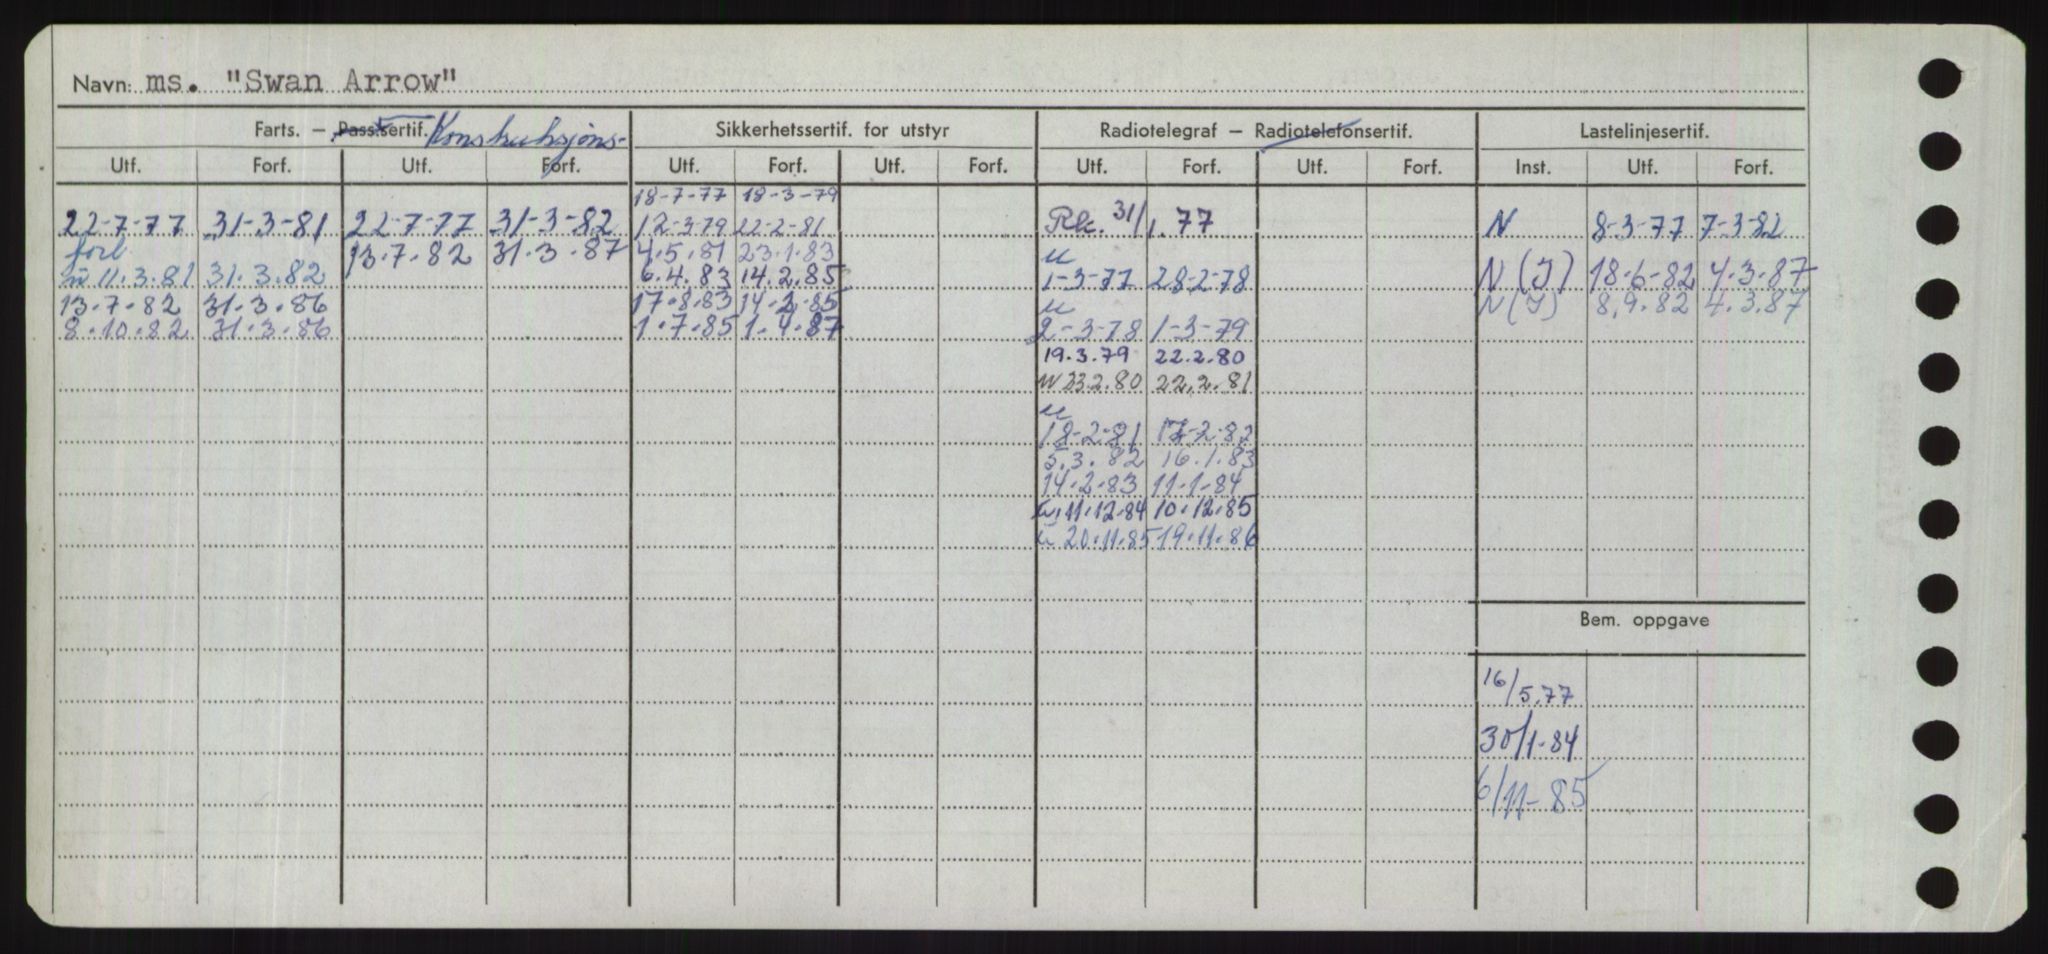 Navn: ms. "Swan Arrow"
Farts. — Pass.sertif. Konstruksjons- Sikkerhetssertif. for utstyr Radiotelegraf — Radiotelefonsertif. Lastelinjesertif.
Utf. Forf. Utf. Forf. Utf. Forf. Utf. Forf. Utf. Forf. Utf. Forf. Inst. Utf. Forf.
18-7-77 18-3-79
22-7-77 31-3-81 22-7-77 31-3-82 12-3-79 22-2-81 Rk. 31/1.77 N 8-3-77 7-3-82
forl 13.7.82 31.3.87 4.5.81 23.1.83 u
u 11.3.81 31.3.82 6.4.83 14.2.85 1-3-77 28-2-78 N(J) 18-6-82 4.3.87
13.7.82 31.3.86 17.8.83 14.2.85 u N(J) 8.9.82 4.3.87
8.10.82 31.3.86 1.7.85 1.4.87 2-3-78 1-3-79
19.3.79 22.2.80
N 23.2.80 22.2.81
u
18-2-81 17-2-82
5.3.82 16.1.83
14.2.83 11.1.84
u. 11.12.84 10.12.85
u 20.11.85 19.11.86
Bem. oppgave
16/5.77
30/1-84
6/11-85